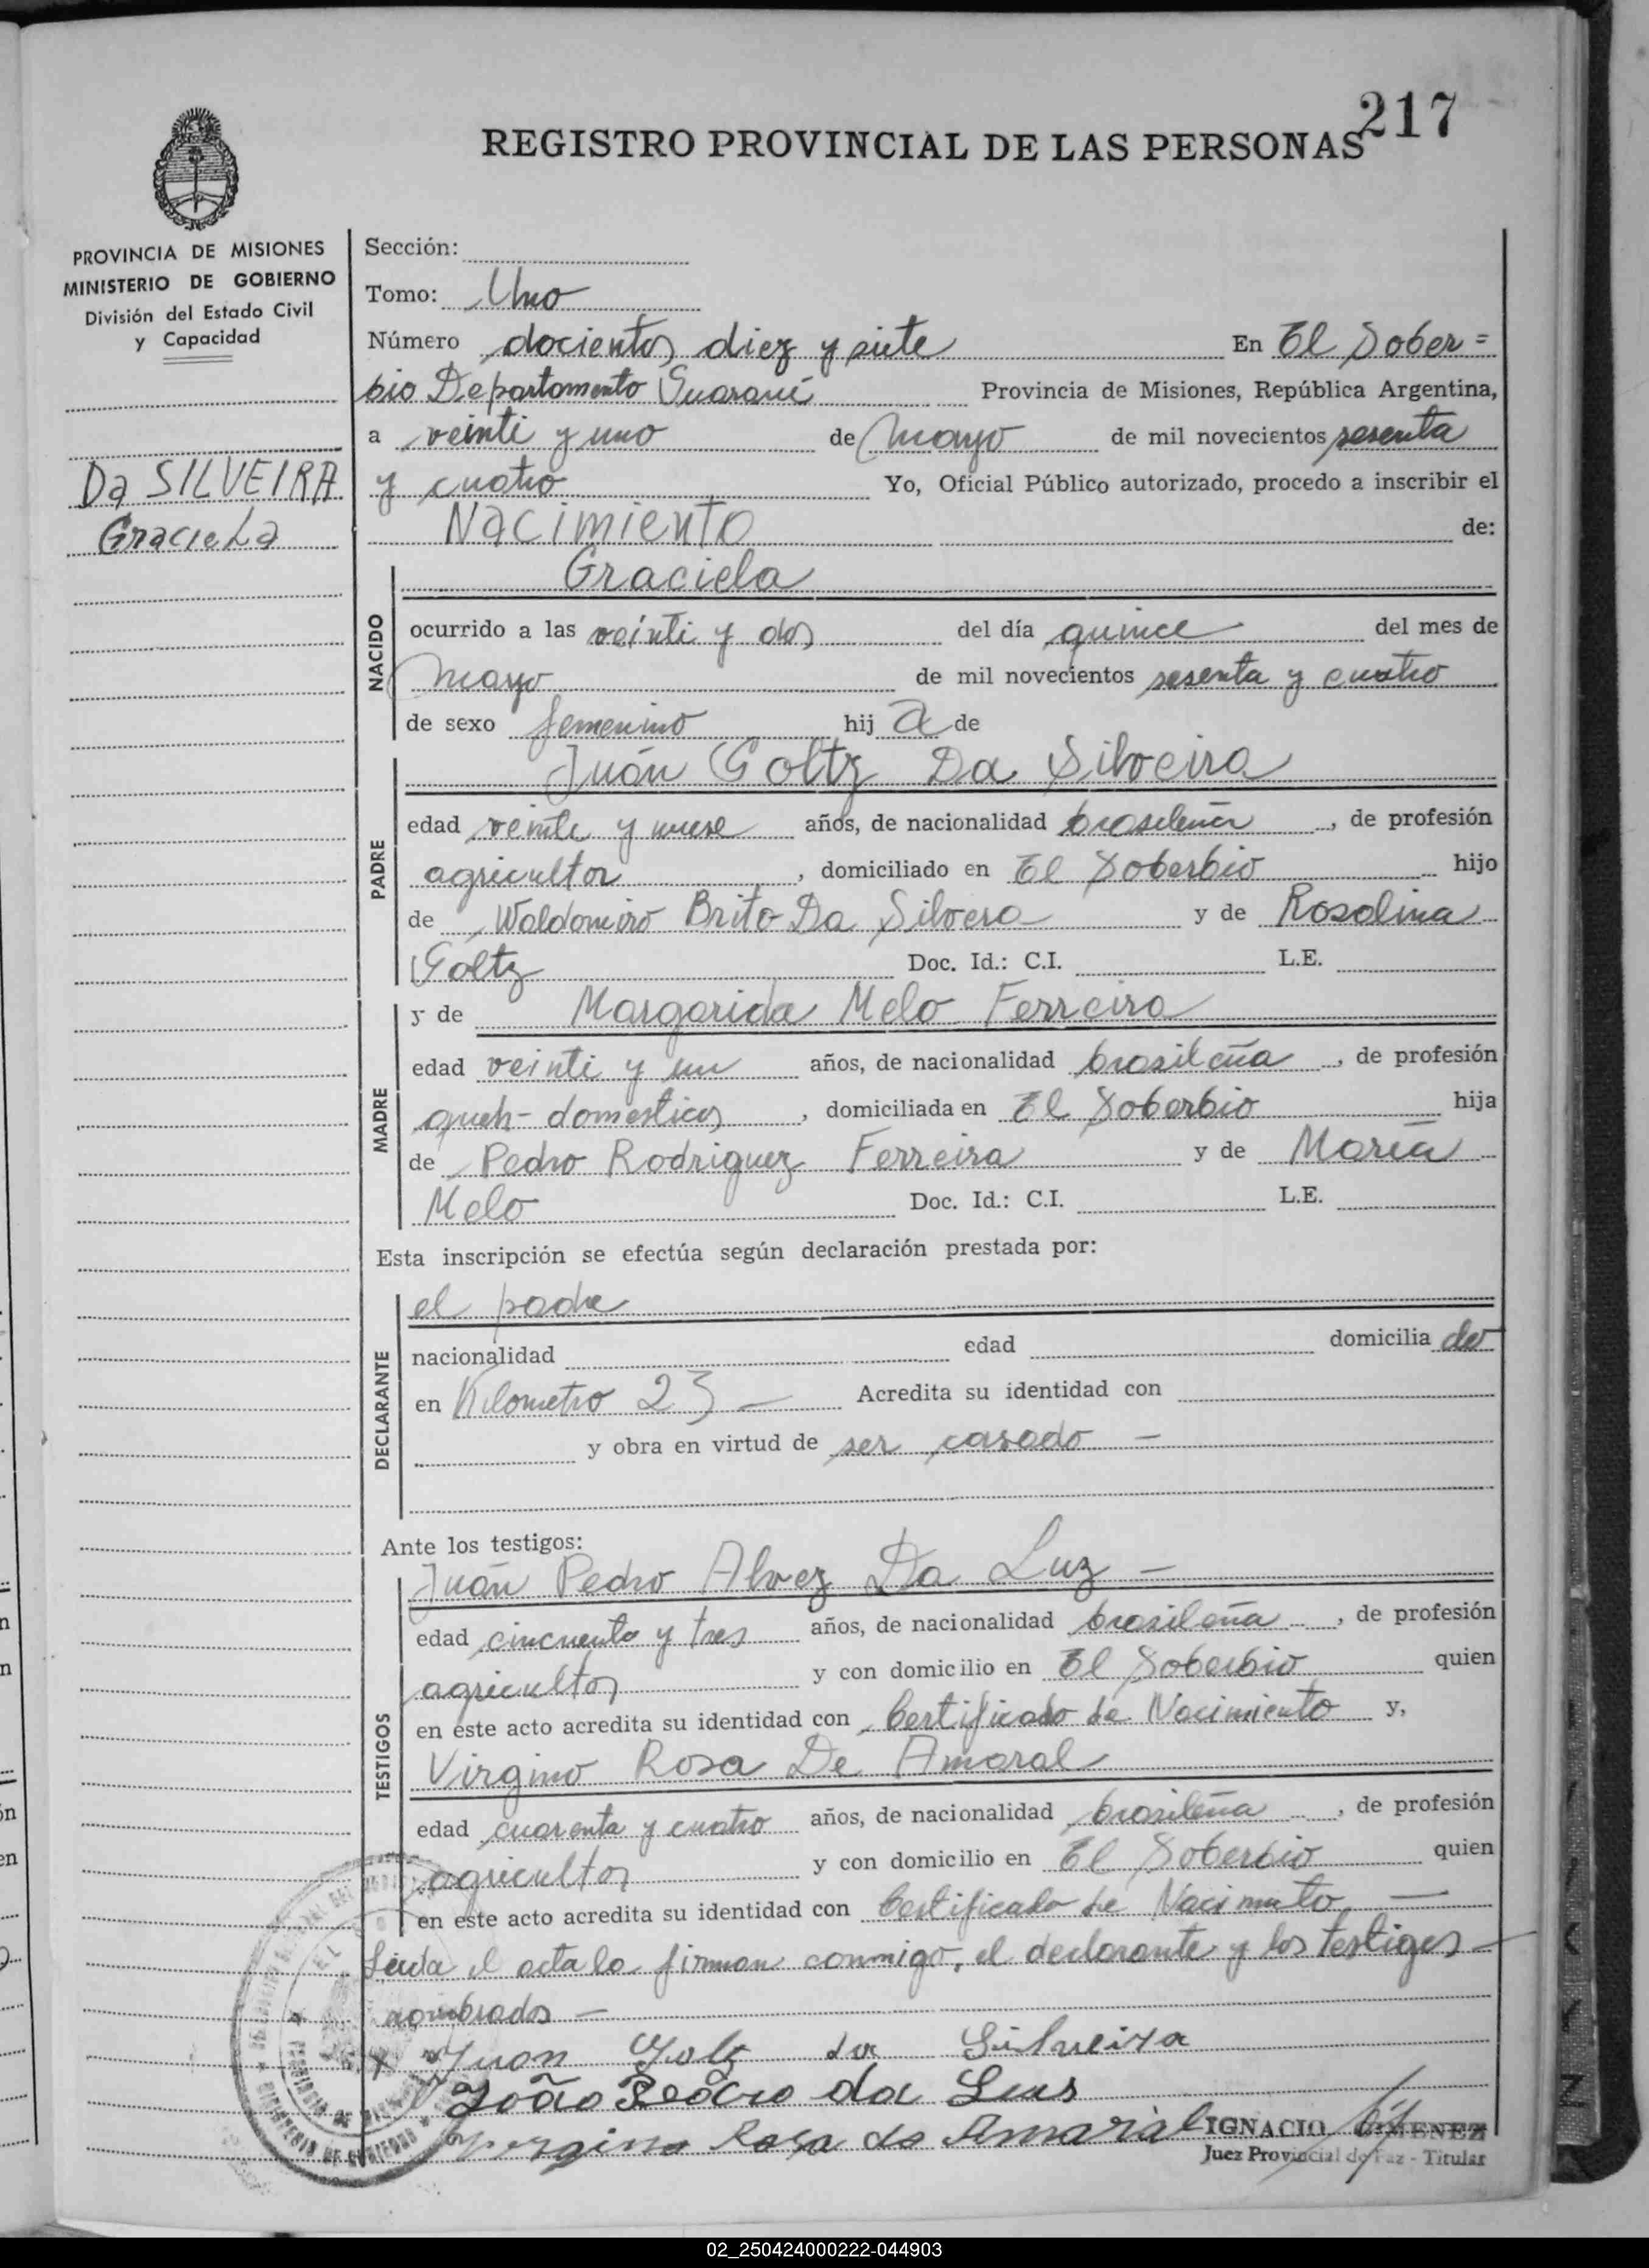 217
REGISTRO PROVINCIAL DE LAS PERSONAS
PROVINCIA DE MISIONES
MINISTERIO DE GOBIERNO
División del Estado Civil
y Capacidad
Da SILVEIRA
Graciela
Sección:
Tomo: Uno
Número docientos diez y siete En El Sober=
bio Departamento Guaraní Provincia de Misiones, República Argentina,
a veinti y uno de mayo de mil novecientos sesenta
y cuatro Yo, Oficial Público autorizado, procedo a inscribir el
Nacimiento de:
NACIDO
Graciela
ocurrido a las veinti y dos del día quince del mes de
mayo de mil novecientos sesenta y cuatro
de sexo femenino hij a de
PADRE
Juán Goltz Da Silveira
edad veinti y nueve años, de nacionalidad brasileña, de profesión
agricultor, domiciliado en El Soberbio hijo
de Waldomiro Brito Da Silvera y de Rosalina
Goltz Doc. Id.: C.I. L.E.
MADRE
y de Margarida Melo Ferreira
edad veinti y un años, de nacionalidad brasileña, de profesión
queh-domesticos, domiciliada en El Soberbio hija
de Pedro Rodriguez Ferreira y de María
Melo Doc. Id.: C.I. L.E.
Esta inscripción se efectúa según declaración prestada por:
DECLARANTE
el padre
nacionalidad edad domicilia do
en Kilometro 23 — Acredita su identidad con
y obra en virtud de ser casado —
Ante los testigos:
TESTIGOS
Juán Pedro Alvez Da Luz —
edad cincuenta y tres años, de nacionalidad brasileña, de profesión
agricultor y con domicilio en El Soberbio quien
en este acto acredita su identidad con Certificado de Nacimiento y,
Virgino Rosa De Amaral
edad cuarenta y cuatro años, de nacionalidad brasileña, de profesión
agricultor y con domicilio en El Soberbio quien
en este acto acredita su identidad con Certificado de Nacimnto —
Leida el acta la firman conmigo, el declarante y los testigos —
nombrados —
x Juan Golz da Silveira
João Pedro da Luis
Virgino Rosa do Amaral
IGNACIO GIMENEZ
Juez Provincial de Paz - Titular
02_250424000222-044903